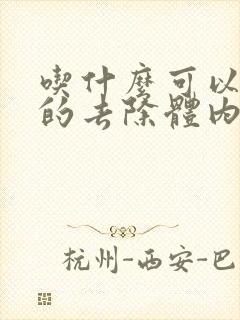 喫什麼可以
的去除體內
杭州-西安-巴